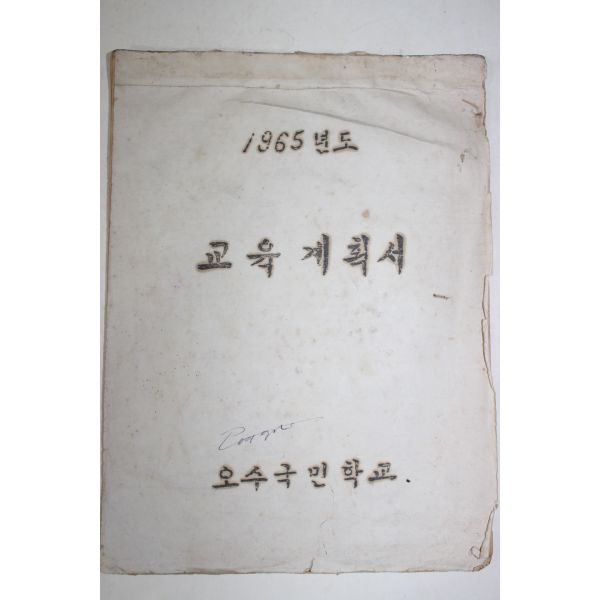 1965년도
교육계획서
오수국민학교.